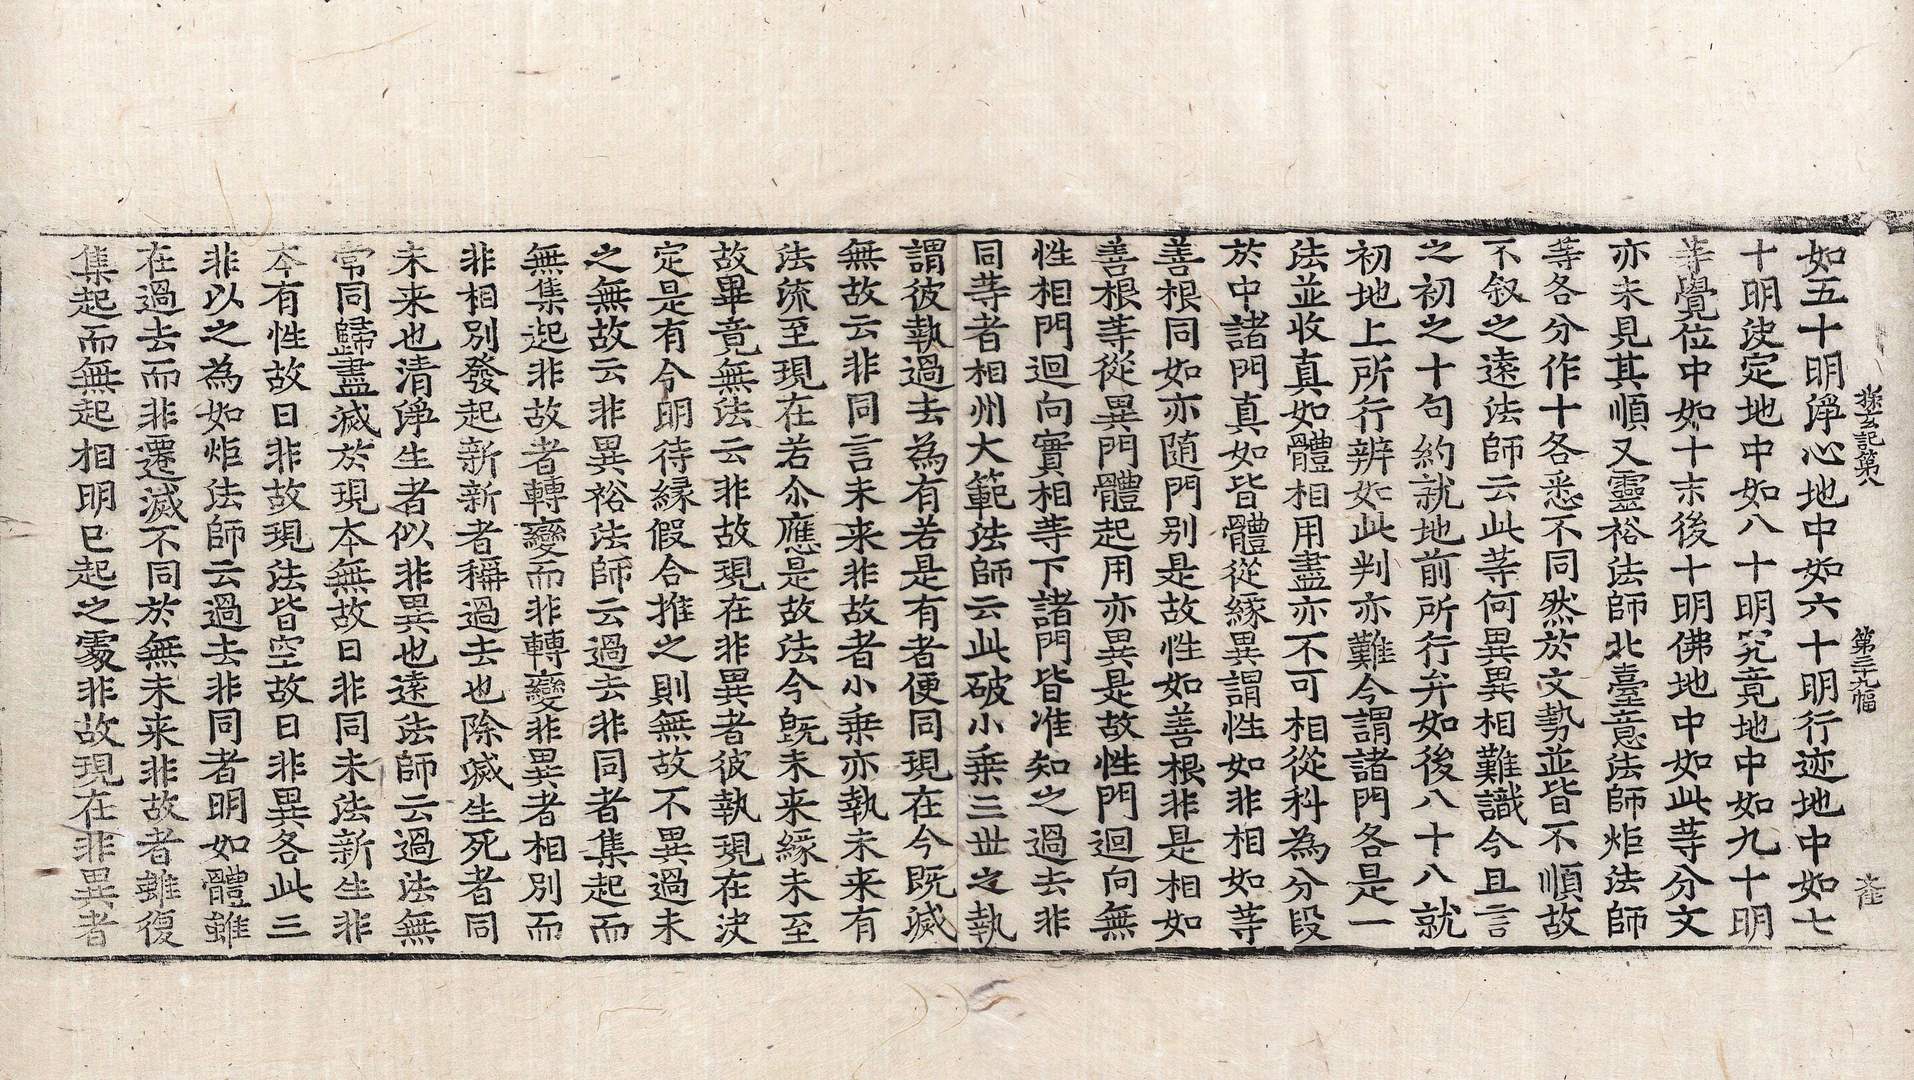 探玄記第八 第三十九幅
如五十明淨心地中如六十明行迹地中如七
十明决定地中如八十明究竟地中如九十明
等覺位中如十末後十明佛地中如此等分文
亦未見其順又靈裕法師北臺意法師炬法師
等各分作十各悉不同然於文勢並皆不順故
不叙之遠法師云此等何異異相難識今且言
之初之十句約就地前所行弁如後八十八就
初地上所行辨如此判亦難今謂諸門各是一
法並收真如體相用盡亦不可相從科為分段
於中諸門真如皆體從緣異謂性如非相如等
善根同如亦随門别是故性如善根非是相如
善根等從異門體起用亦異是故性門迴向無
性相門迴向實相等下諸門皆准知之過去非
同等者相州大範法師云此破小乗三世之執
謂彼執過去為有若是有者便同現在今既滅
無故云非同言未来非故者小乗亦執未来有
法流至現在若尒應是故法今旣未来緣未至
故畢竟無法云非故現在非異者彼執現在决
定是有今明待縁假合推之則無故不異過未
之無故云非異裕法師云過去非同者集起而
無集起非故者轉變而非轉變非異者相別而
非相別發起新新者稱過去也除滅生死者同
未来也清淨生者似非異也遠法師云過法無
常同歸盡滅於現夲無故曰非同未法新生非
夲有性故曰非故現法皆空故曰非異各此三
非以之為如炬法師云過去非同者明如體雖
在過去而非遷滅不同於無未来非故者雖復
集起而無起相明已起之處非故現在非異者